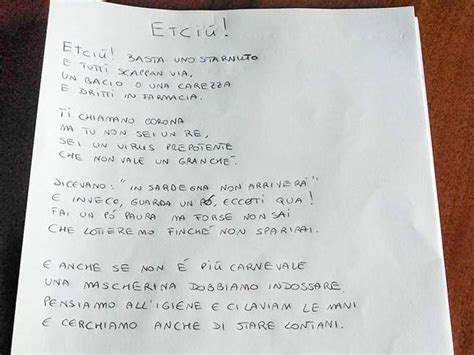 ETCIÚ!
ETCIÚ! BASTA UNO STARNUTO
E TUTTI SCAPPAN VIA,
UN BACIO O UNA CAREZZA
E DRITTI IN FARMACIA.
TI CHIAMANO CORONA
MA TU NON SEI UN RE,
SEI UN VIRUS PREPOTENTE
CHE NON VALE UN GRANCHÉ.
DICEVANO: "IN SARDEGNA NON ARRIVERÀ"
E INVECE, GUARDA UN PÓ, ECCOTI QUA!
FAI UN PÓ PAURA MA FORSE NON SAI
CHE LOTTEREMO FINCHÉ NON SPARIRAI.
E ANCHE SE NON É PIÙ CARNEVALE
UNA MASCHERINA DOBBIAMO INDOSSARE.
PENSIAMO ALL'IGIENE E CI LAVIAM LE MANI
E CERCHIAMO ANCHE DI STARE LONTANI.